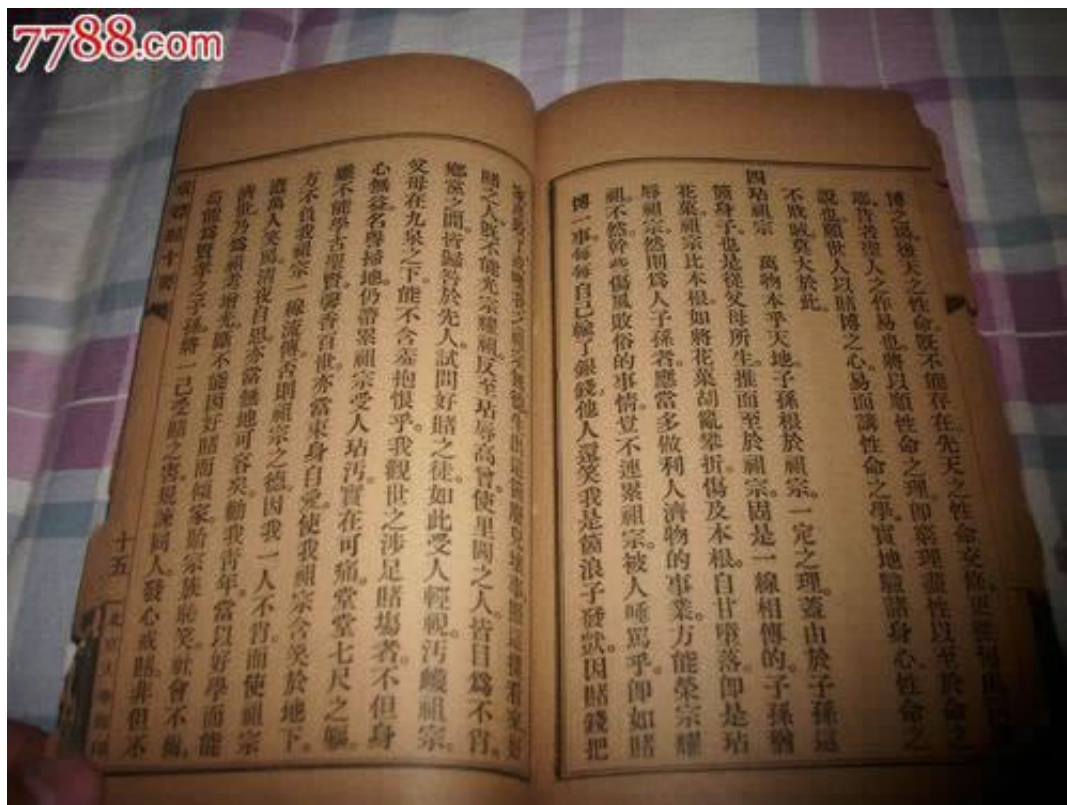 7788.com
博之場後天之性命既不能存在先天之性命
耶昔者聖人之作易也將以順性命之理即窮理盡性以至於命之
說也願世人以賭博之心易而講性命之學實地驗諸身心性命之
不戕賊莫大於此
四玷祖宗 萬物本乎天地子孫根於祖宗一定之理蓋由於子孫這
箇身子也是從父母所生推而至於祖宗固是一線相傳的子孫猶
花菓祖宗比本根如將花菓胡亂攀折傷及本根自甘墮落即是玷
辱祖宗然則為人子孫者應當多做利人濟物的事業方能榮宗耀
祖不然幹些傷風敗俗的事情豈不連累祖宗被人唾罵乎即如賭
博一事每每自己輸了銀錢他人還笑我是箇浪子發獃因賭錢把
賭之人既不能光宗耀祖反至玷辱高曾使里閭之人皆目為不肖
鄉黨之間皆歸咎於先人試問好賭之徒如此受人輕視汚衊祖宗
父母在九泉之下能不含羞抱恨乎我觀世之涉足賭場者不但身
心無益名譽掃地仍帶累祖宗受人玷汚實在可痛堂堂七尺之軀
雖不能學古聖賢馨香百世亦當束身自愛使我祖宗含笑於地下
方不負我祖宗一線流傳否則祖宗之德因我一人不肖而使祖宗
遭萬人笑罵清夜自思亦當無地可容矣勸我青年當以好學而能
濟世乃為祖考增光雖不能因好賭而傾家貽宗族恥笑社會不倫
苟能為賢孝之子孫將一己受賭之害規諫同人發心戒賭非但不
戒嫖賭十要
十五